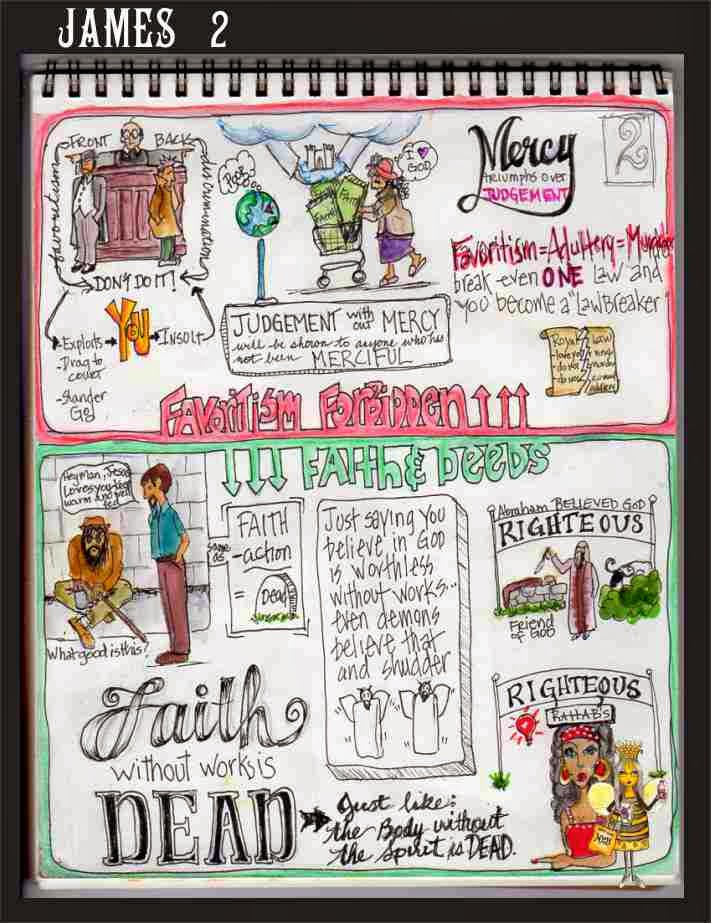 JAMES 2
FRONT BACK
favoritism
discrimination
DON'T DO IT!
-Exploits
-Drag to
court
-Slander
God
YOU
INSULT
I ♥
GOD
FAITH
JUDGEMENT with
out MERCY
will be shown to anyone who has
not been MERCIFUL
Mercy
triumphs over
JUDGEMENT
2
Favoritism=Adultery=Murder
break even ONE law and
you become a "LawBreaker"
Royal Law
FAVORITISM FORBIDDEN
FAITH & DEEDS
Hey Man, Jesus
Loves you. Keep
warm and well
fed
What good is this?
FAITH
-action
same
as
= Dead
Just saying you
believe in God
is worthless
without works...
even demons
believe that
and shudder
Abraham BELIEVED GOD
RIGHTEOUS
Friend
of GOD
RIGHTEOUS
RAHAB'S
Faith
without works is
DEAD
Just like:
the Body without
the Spirit is DEAD.